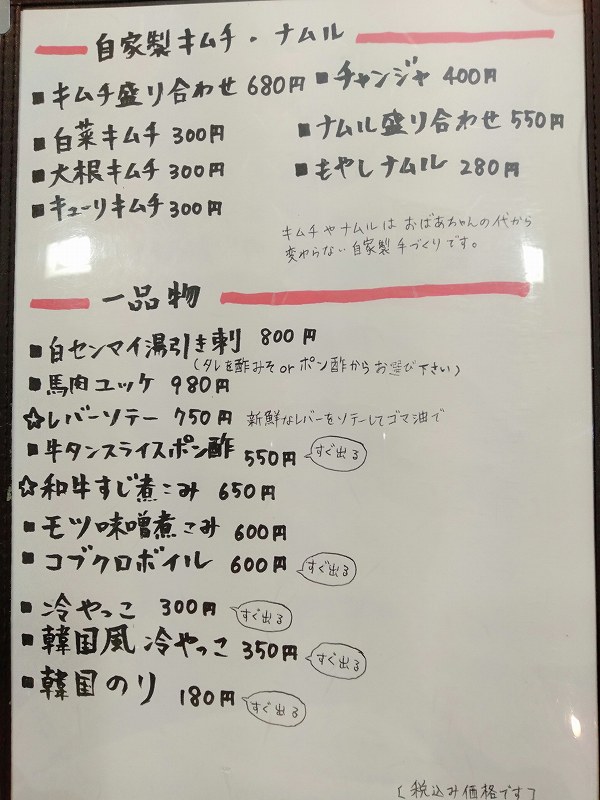 自家製キムチ・ナムル
■キムチ盛り合わせ 680円
■白菜キムチ 300円
■大根キムチ 300円
■キューリキムチ 300円
■チャンジャ 400円
■ナムル盛り合わせ 550円
■もやしナムル 280円
キムチやナムルは おばあちゃんの代から
変わらない自家製手づくりです。
一品物
■白センマイ湯引き刺 800円
(タレを酢みそorポン酢からお選び下さい)
■馬肉ユッケ 980円
☆レバーソテー 750円 新鮮なレバーをソテーしてゴマ油で
■牛タンスライスポン酢 550円 すぐ出る
☆和牛すじ煮こみ 650円
■モツ味噌煮こみ 600円
■コブクロボイル 600円 すぐ出る
■冷やっこ 300円 すぐ出る
■韓国風冷やっこ 350円 すぐ出る
■韓国のり 180円 すぐ出る
[税込み価格です]